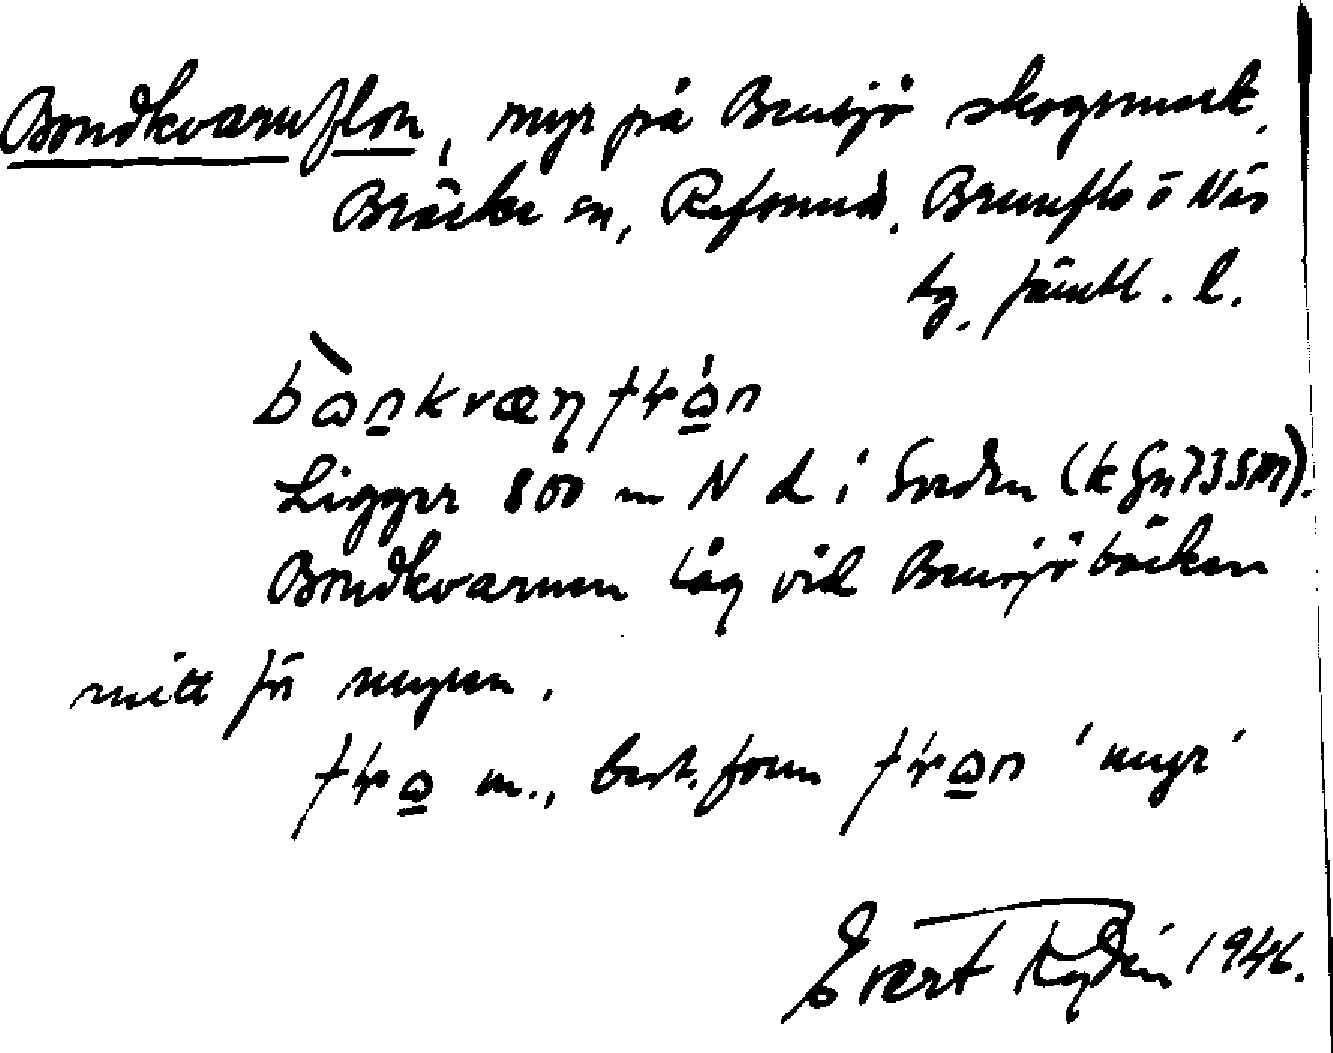 Bondkvarnflon, myr på Bensjö skogsmark,
Bräcke sn, Refsund, Brunflo o Näs
tg. Jämtl. l.
bò̱nkvæɳfɽó̱n
Ligger 800 m N d i Norden
Bondkvarnen låg vid Bensjöbäcken
mitt för myren.
fɽo̱ m., best. form fɽo̱n 'myr'
Evert 1946.